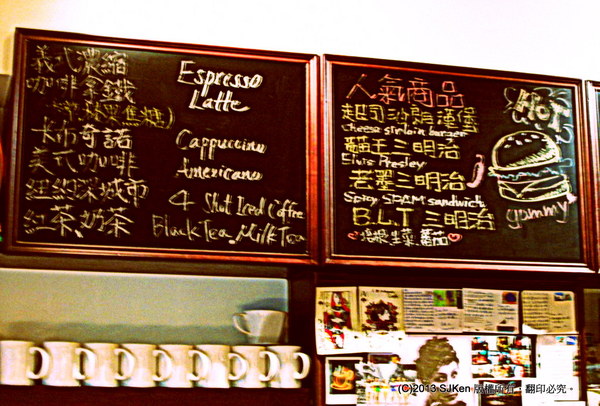 義式濃縮
Espresso
咖啡拿鐵
Latte
卡布奇諾
Cappuccino
美式咖啡
Americano
紐約深城市
4 Shot Iced Coffee
紅茶.奶茶
Black Tea.Milk Tea
人氣商品
起司沙朗漢堡
Cheese sirloin burger
貓王三明治
Elvis Presley
老墨三明治
Spicy SPAM sandwich
B.L.T 三明治
培根.生菜.蕃茄
HOT
yummy
(C)2013 SJKen 版權所有,翻印必究。